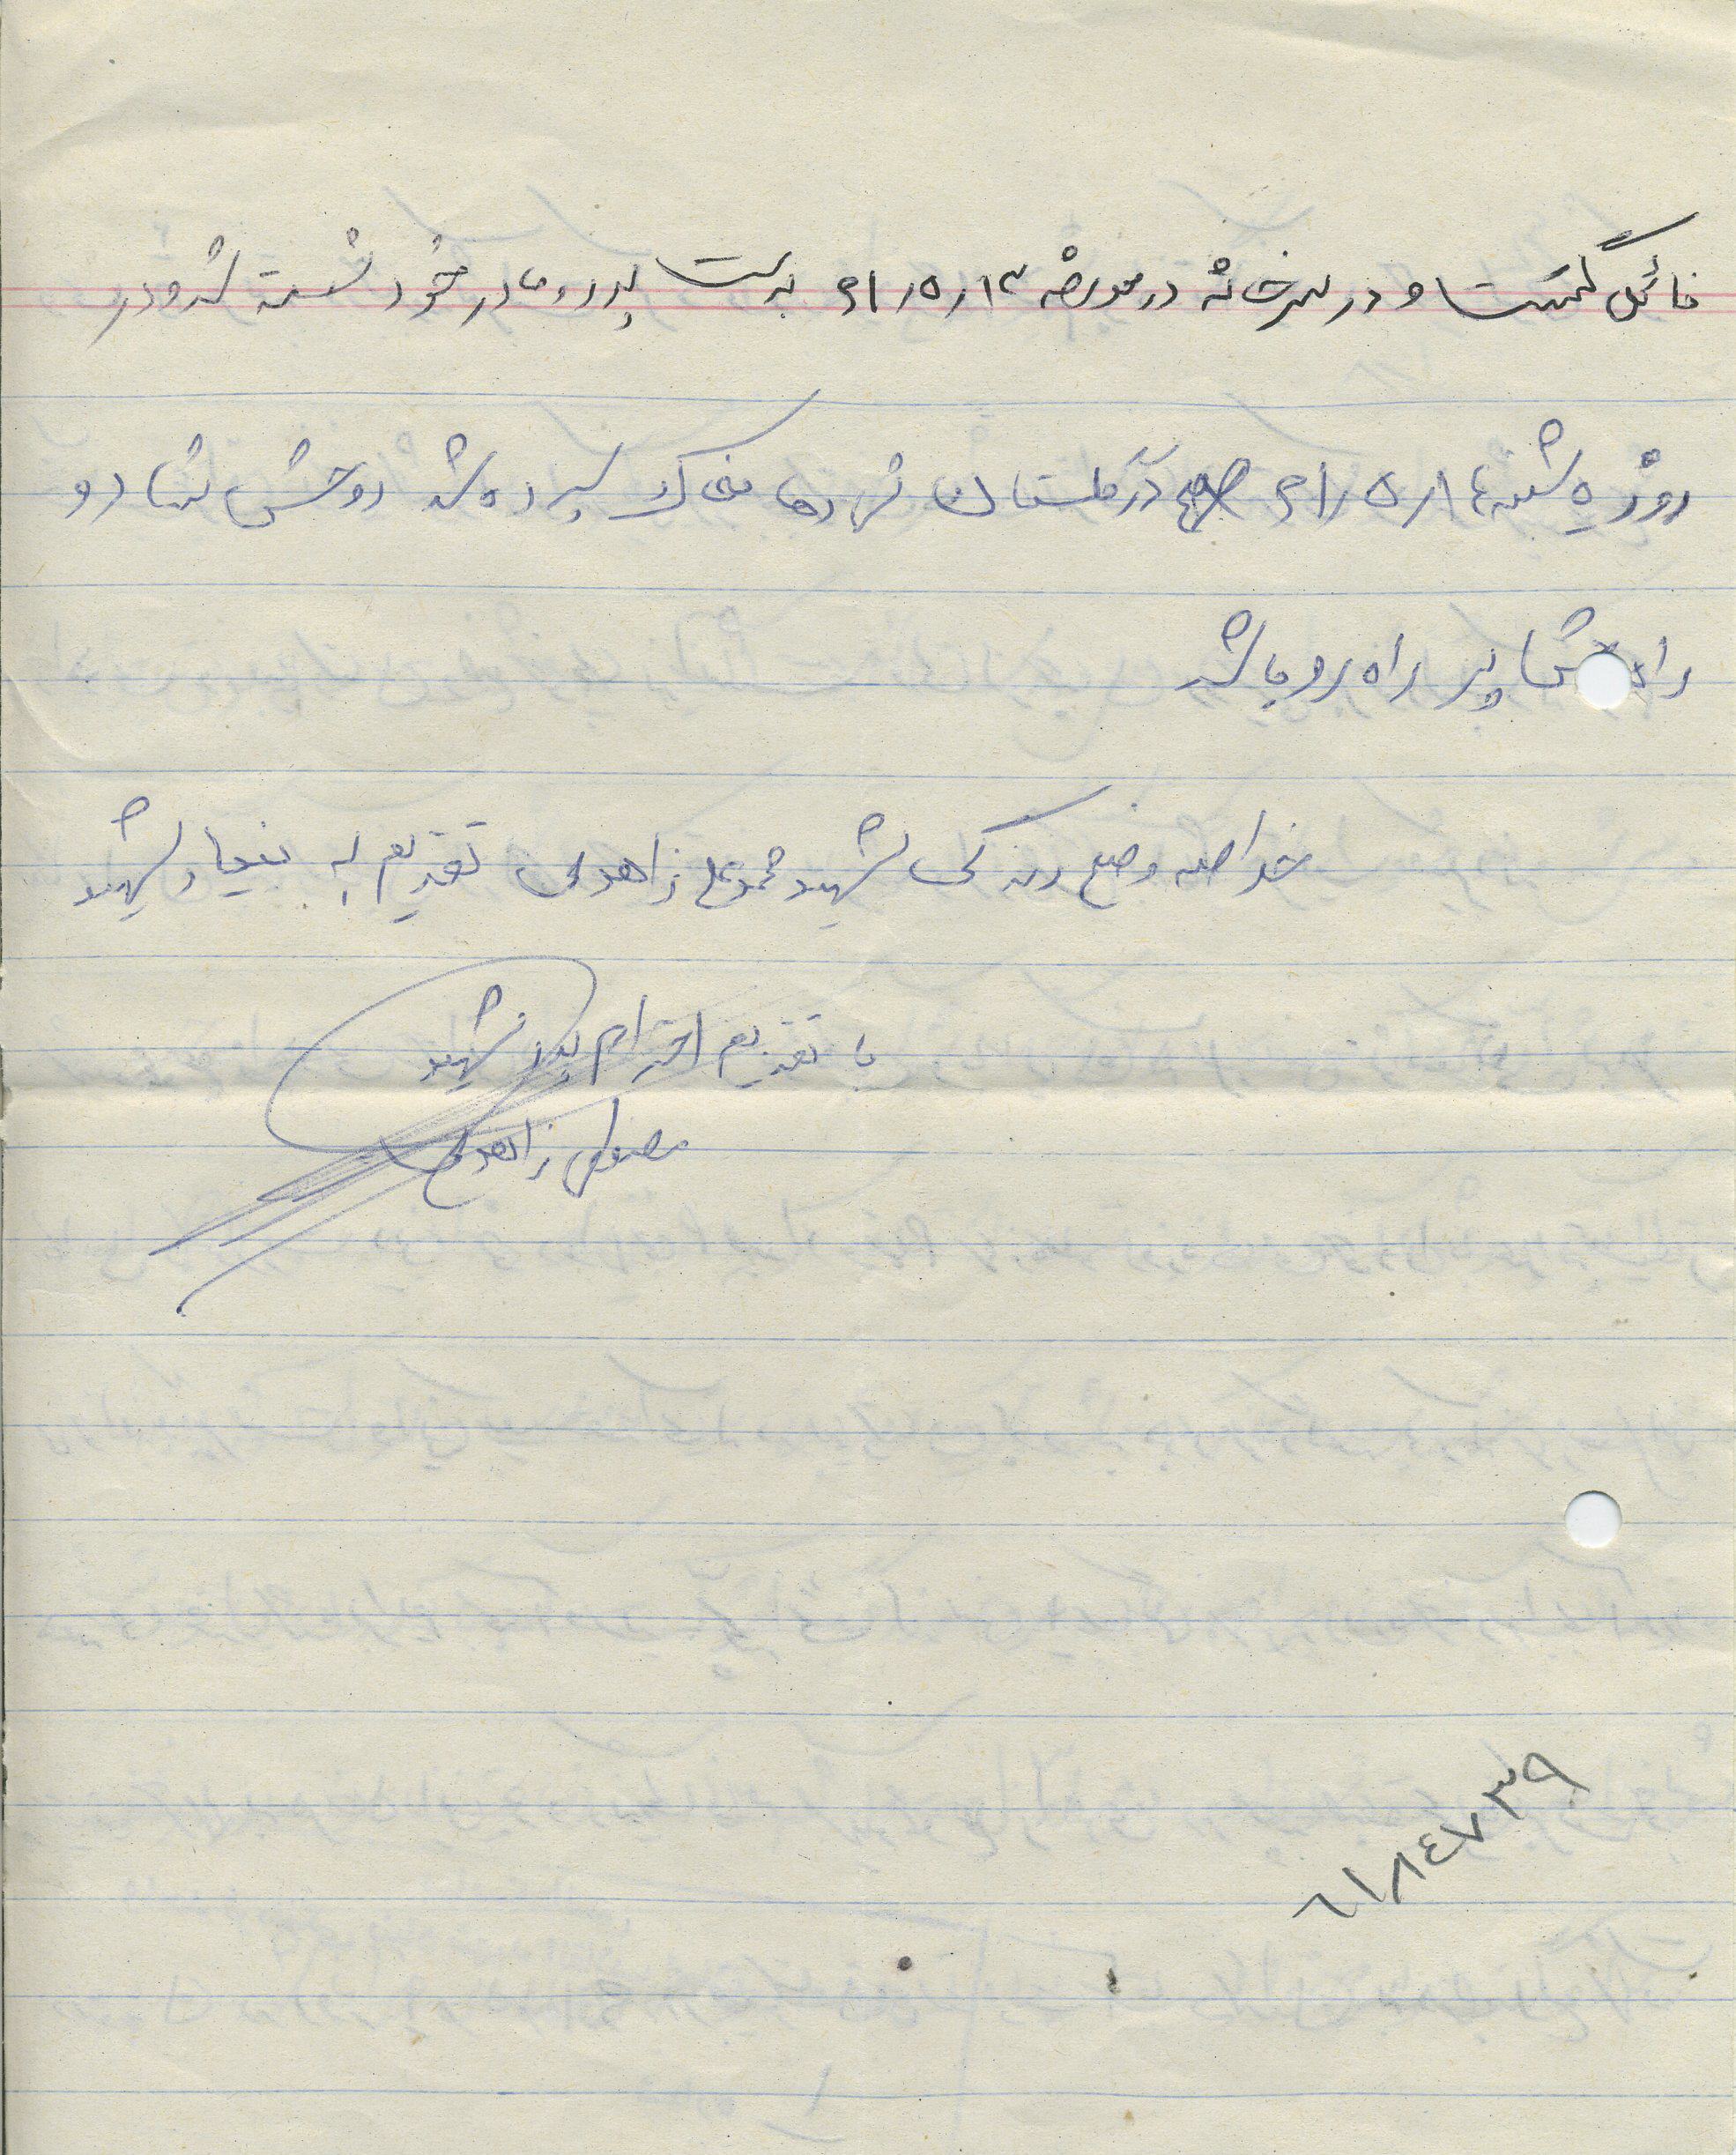 نائل گشت و در سردخانه در مورخه ۶۱/۵/۱۳ بدست پدر و مادر خود شسته شد و در
روز ۵ شنبه ۶۱/۵/۱۴ در گلستان شهدا بخاک سپرده شد روحش شاد و
راهش پر راه رو باشد
خلاصه وضع زندگی شهید محمدعلی زاهدی تقدیم به بنیاد شهید
با تقدیم احترام پدر شهید
مصطفی زاهدی
٦١٨٤٧٣٩